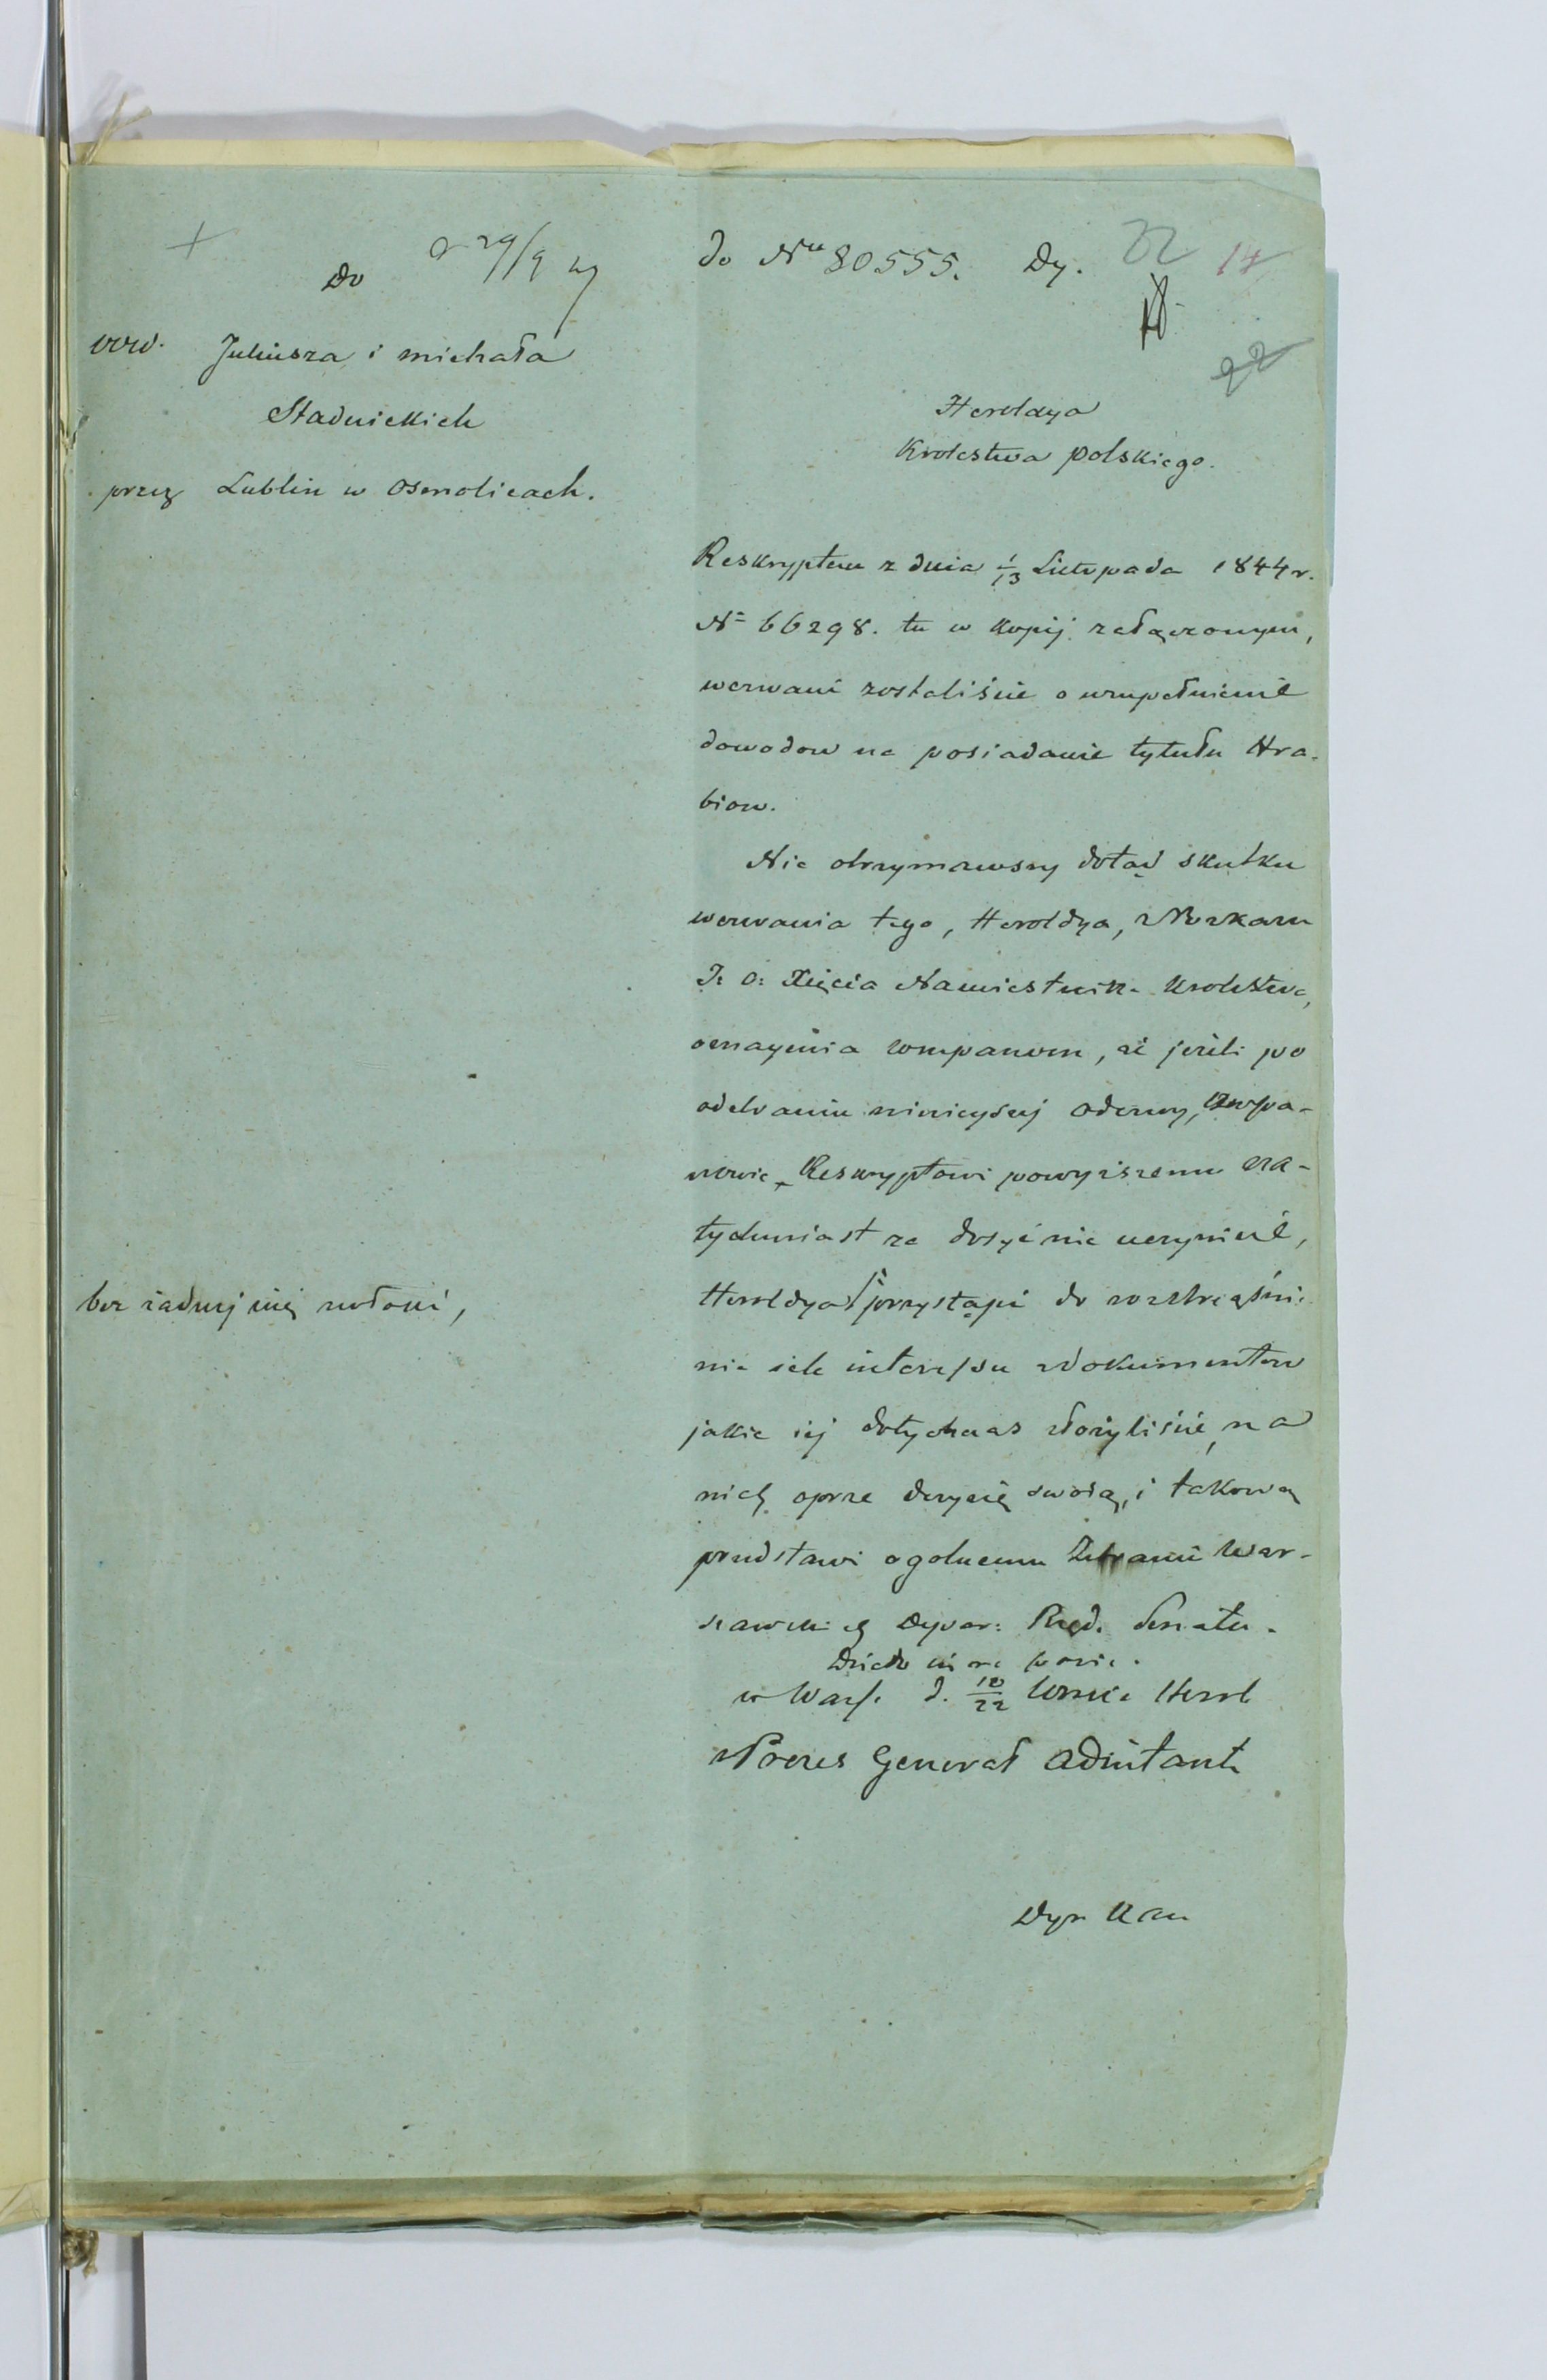 Do 29/9
WW. Juliusza i Michała
Stadnickich
przez Lublin w Osmolicach.
do Nu 80555. Dy. 22 14
22
Heroldya
Krolestwa polskiego.
Reskryptem z dnia 1/13 Listopada 1844 r.
No 66298. tu w kopij załączonym,
wezwani zostaliście o uzupełnienie
dowodow na posiadanie tytułu Hra-
biow.
Nie otrzymawszy dotąd skutku
wezwania tego, Heroldya, z Rozkazu
J: O: Xięcia Namiestnika Krolestwa,
oznaymia WWpanom, że jeżeli po
odebraniu niniejszej odezwy, WWpa-
nowie Reskryptowi powyższemu na-
tychmiast za dosyć nie uczynicie,
bez żadnej iuż zwłoki,
Heroldya przystąpi do roztrząśnie-
nia ich interessu z dokumentow
jakie iej dotychczas złożyliście, na
nich oprze decyzię swoią, i takową
przedstawi ogolnemu Zebraniu War-
szawskich Depar: Rządz. Senatu.
w Warsz. d. 10/22 Wrześ. Herol
Prezes Generał Adiutant
Dyr Kan